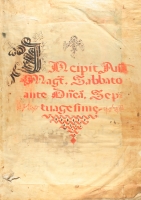 Incipit Añ
Magr̃. Sabbato
ante Dñcã. Sep
tuagesime